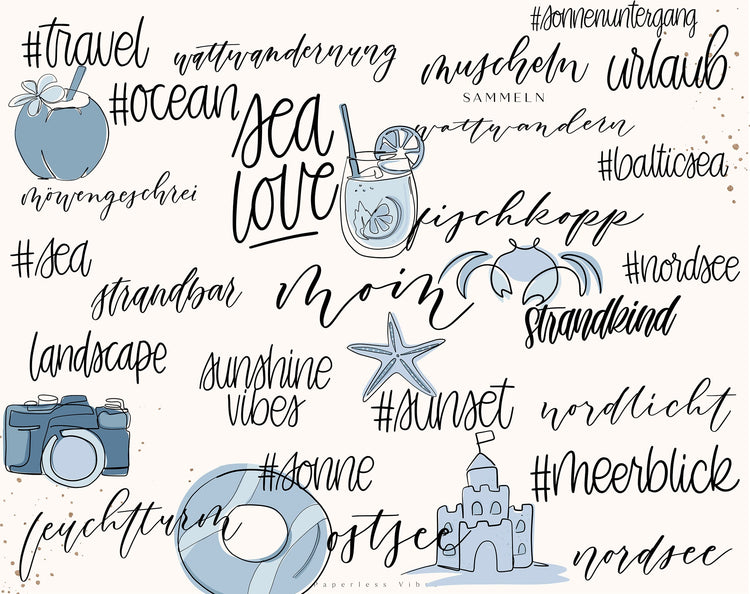 #sonnenuntergang
#travel
wattwandernung
muscheln
SAMMELN
urlaub
#ocean
sea
love
wattwandern
#balticsea
möwengeschrei
fischkopp
#sea
#nordsee
strandbar
moin
strandkind
landscape
sunshine
vibes
#sunset
nordlicht
#sonne
#meerblick
feuchtturm
ostsee
nordsee
Paperless Vibes